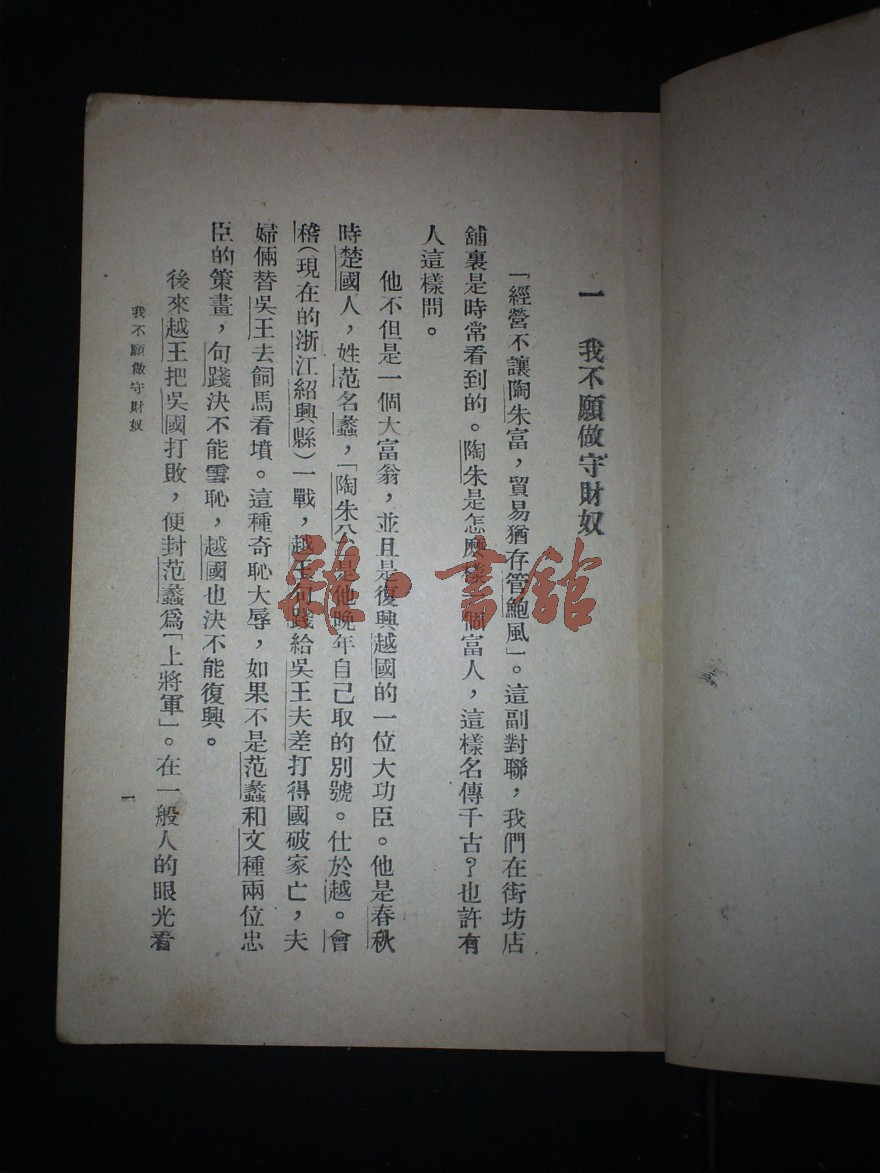 一　我不願做守財奴
「經營不讓陶朱富，貿易猶存管鮑風」。這副對聯，我們在街坊店
舖裏是時常看到的。陶朱是怎麼樣一個富人，這樣名傳千古？也許有
人這樣問。
他不但是一個大富翁，並且是復興越國的一位大功臣。他是春秋
時楚國人，姓范名蠡，「陶朱公」是他晚年自己取的別號。仕於越。會
稽（現在的浙江紹興縣）一戰，越王句踐給吳王夫差打得國破家亡，夫
婦倆替吳王去飼馬看墳。這種奇恥大辱，如果不是范蠡和文種兩位忠
臣的策畫，句踐決不能雪恥，越國也決不能復興。
後來越王把吳國打敗，便封范蠡爲「上將軍」。在一般人的眼光看
我不願做守財奴
一
雜·書館